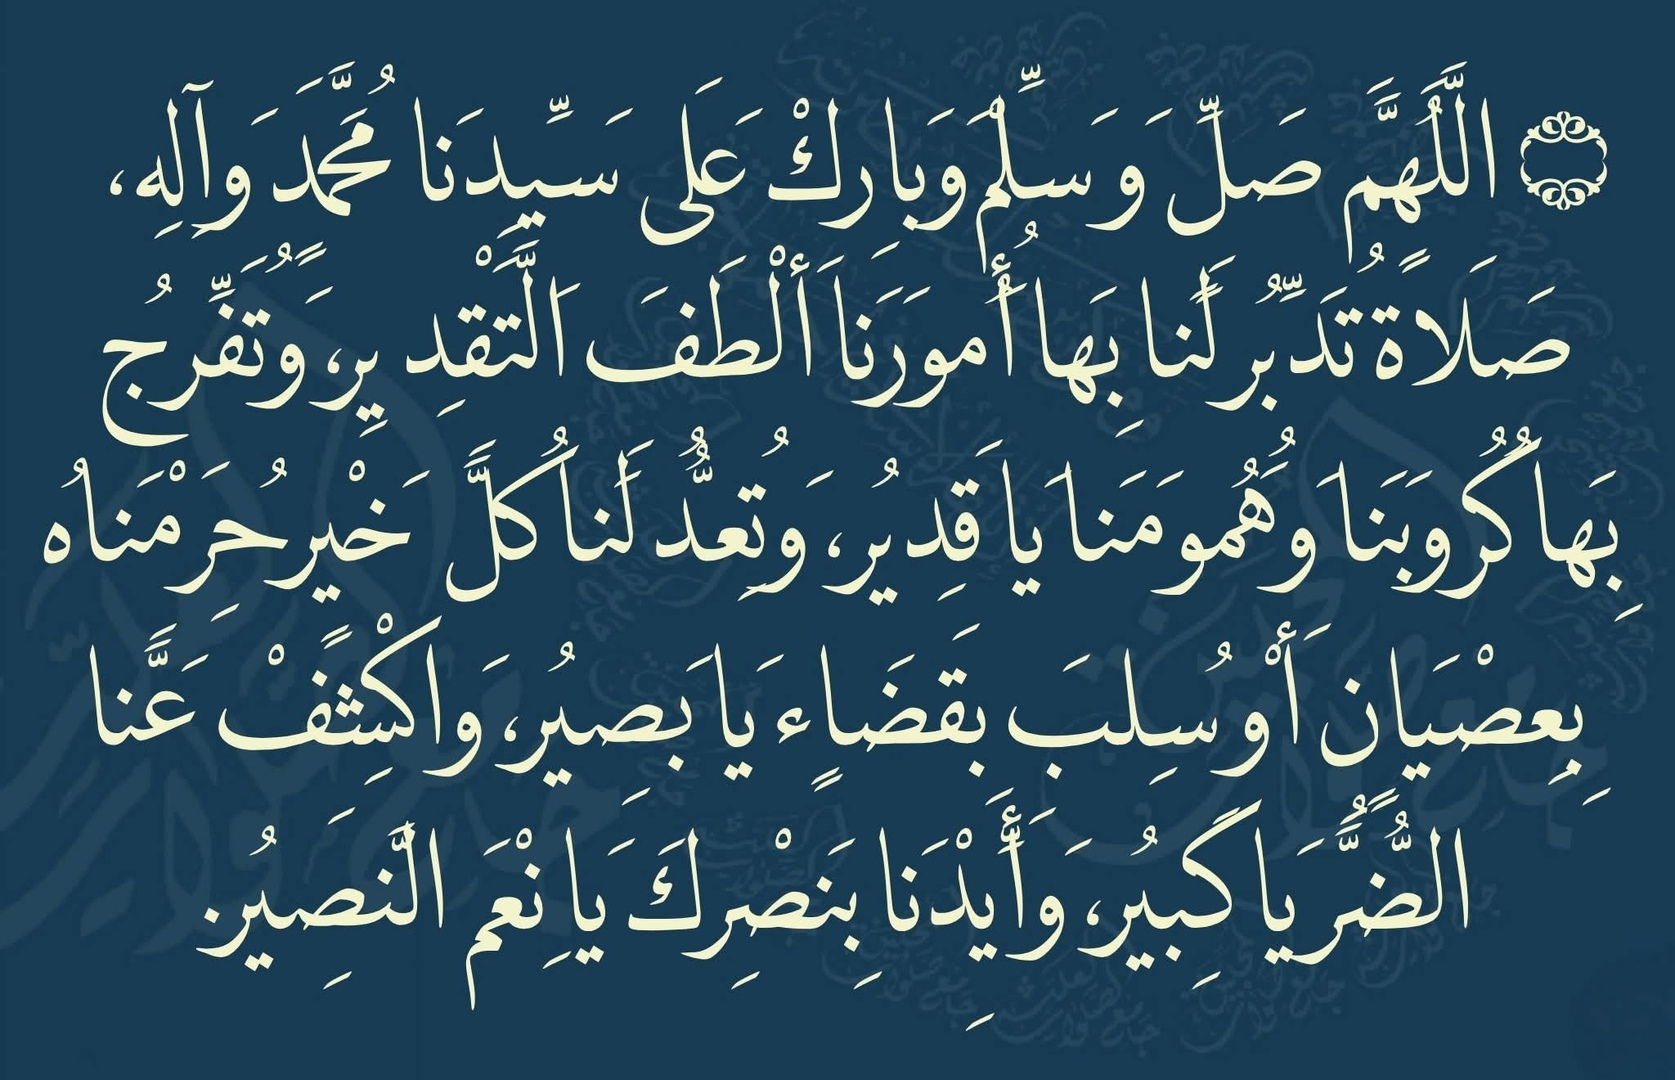 اللَّهُمَّ صَلِّ وَسَلِّمْ وَبَارِكْ عَلَى سَيِّدِنَا مُحَمَّدَ وَآلِهِ،
صَلَاةً تُدَبِّرُ لَنَا بِهَا أُمورَنَا أَلْطَفَ اَلتَّقْدِيرِ، وَتُفَرِّجُ
بِهَا كُرُوبَنَا وَهُمومَنَا يا قَدِيرُ، وَتُعِدُّ لَنَا كُلَّ خَيْرٍ حُرِمْنَاهُ
بِعِصْيَانٍ أَوْ سُلِبَ بِقَضَاءٍ يَا بَصِيرُ، وَاكْشِفْ عَنَّا
الضُّرَّ يَا كَبِيرُ، وَأَيِّدْنَا بِنَصْرِكَ يَا نِعْمَ النَّصِيرُ.